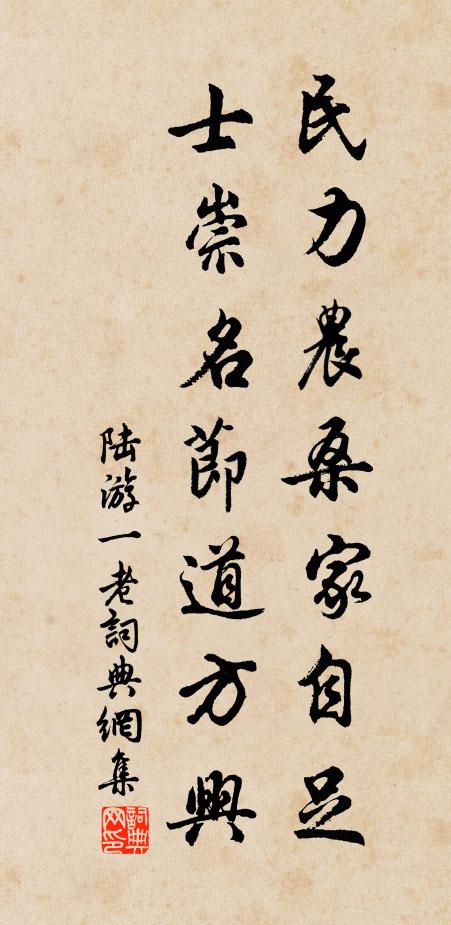 民力農桑家自足
士崇名節道方興
陆游一老詞典網集
詞典网印